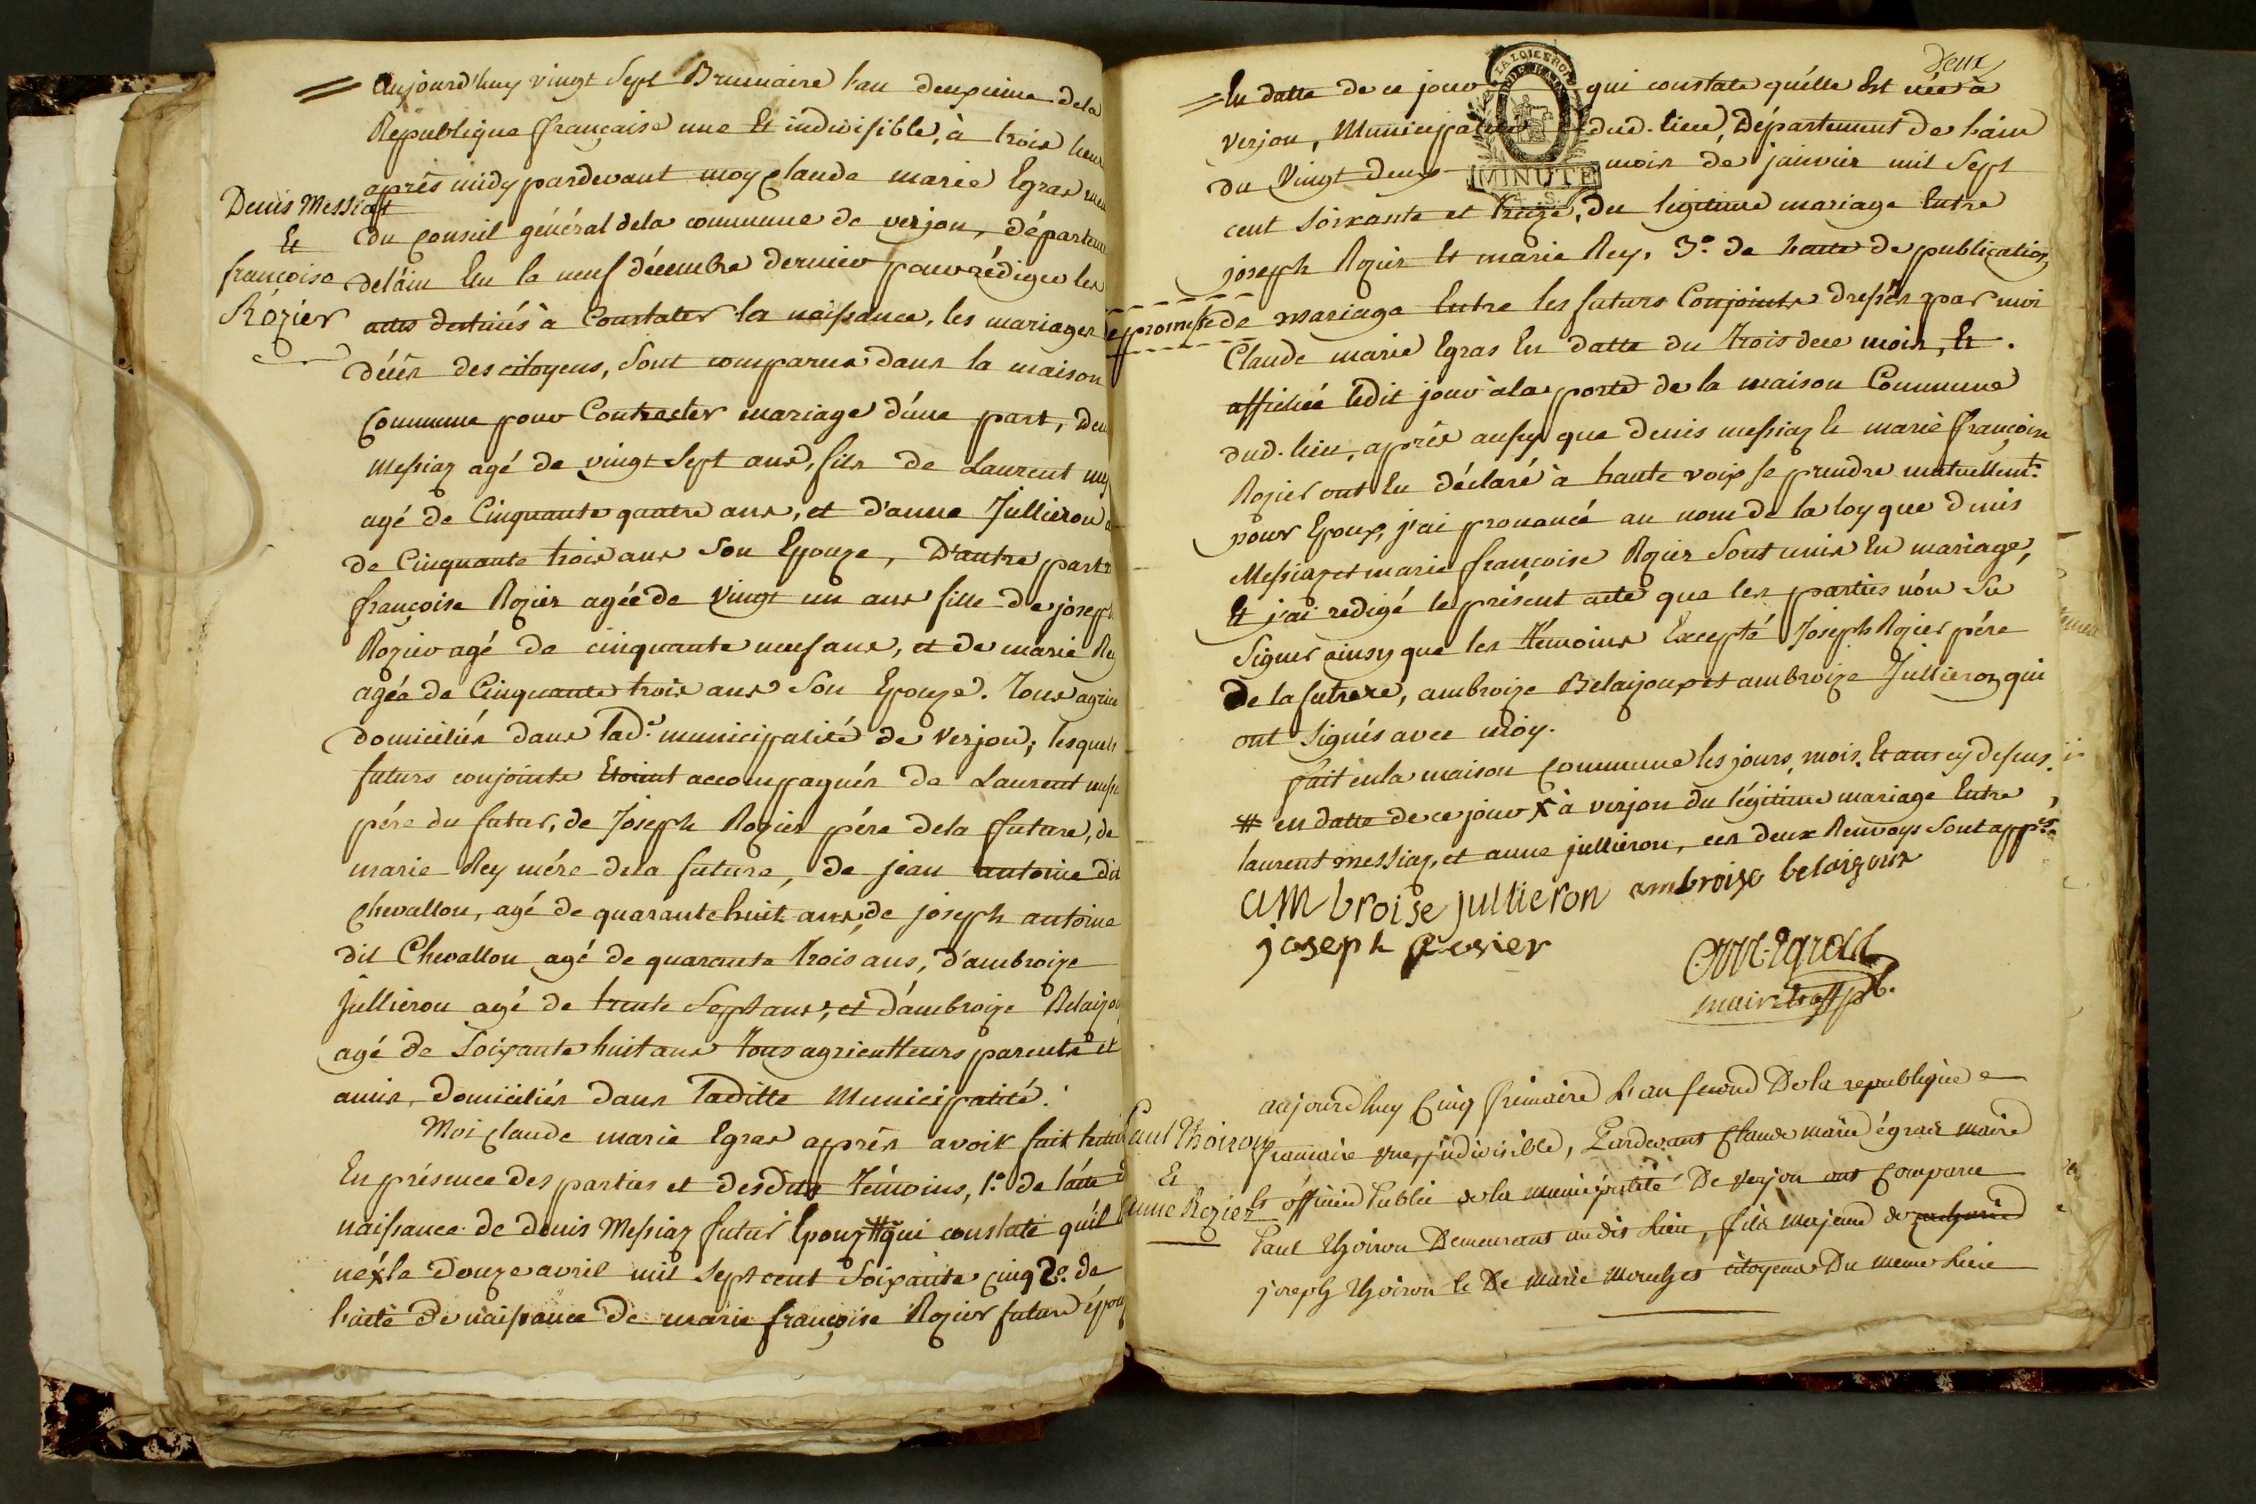 Aujourd'huy vingt Sept Brumaire l'an deuxieme dela
Republique française une Et indivisible, à trois heu
après midy pardevant moy Claude marie Egras
Denis Messiaz
Et
françoise
Rozier
du Conseil général dela commune de verjon, départem
delâin Eu le neuf décembre dernier pour rédiger les
actes destinés à Constater les naissance, les mariages
décés des citoyens, Sont comparus dans la maison
Commune pour Contracter mariage d'une part, Den
Messiaz agé de vingt Sept ans, fils de Laurent
agé de Cinquante quatre ans, et d'anne Jullieron
de Cinquante trois ans Son Epouze, D'autre part
françoise Rozier agée de Vingt un ans fille de joseph
Rozier agé de cinquante neuf ans, et de marie Rey
agéa de Cinquante trois ans Son Epouze. Tous agricu
domiciliés dans lad. municipalité de Verjon; lesquels
futurs conjoints Etoient accompagnés de Laurent
pére du futur, de Joseph Rozier pére dela future, de
marie Rey mére dela future, de jean antoine dit
Chevallon, agé de quarante huit ans, de joseph antoine
dit Chevallon agé de quarante trois ans, d'ambroize
Jullieron agé de trente Sept ans, et d'ambroize Belaijou
agé de Soixante huit ans tous agricutteurs parents et
amis, domiciliés dans laditte Municipalité.
Moi Claude marie Egras après avoir fait
En présence des parties et desdits témoins, 1.o de lâcte
naissance de denis Messiaz futur Epoux # qui constate qu'il
né x le douze avril mil sept cent Soixante cinq 2.o de
l'acte de naissance de marie françoise Rozier future épou
deux
En datte de ce jour qui constate qu'élle Est née à
LA LOI LE ROI
MINUTE
verjon, Municipalité dud. lieu, Département de l'ain
du Vingt deux mois de janvier mil Sept
cent Soixante et treize, du legitime mariage Entre
joseph Rozier Et marie Rey. 3.o de l'acte de publication
e promesse de mariage Entre les futurs Conjoints dressés par moi
Claude marie Egras En datte du trois de ce mois, Et
affichée ledit jour à la porte de la maison Commune
dud. lieu, aprés aussy que denis messiaz Et marie françoise
Rozier ont Eu déclaré à haute voix se prendre mutuellemt.
pour Epoux, j'ai prononcé au nom de la loy que denis
Messiaz et marie françoise Rozier Sont unis En mariage,
Et j'ai redigé le présent acte que les parties n'on Su
Signer ainsy que les témoins Excepté Joseph Rozier pére
De la future, ambroize Belaijoux et ambroize Jullieron qui
ont Signés avec moy.
fait en la maison Commune les jours, mois, Et ans cy dessus.
# en datte de ce jour x à verjon du légitime mariage Entre
laurent messiaz, et anne jullieron, ces deux Renvoys Sont appes.
ambroise jullieron ambroise belaizoux
joseph Rosier
C.M. Egras
maire et off. pb.
aujourd'huy Cinq frimaire L'an second De la republique
Paul Thoiron
Et
anne Rozier
francaise une, indivisible, Pardevant Claude marie égras maire
Et officier Public de la municipalité De verjon ont Comparu
Paul Thoiron Demeurant audis Lieu, fils majeur de
joseph Thoiron Et De marie citoyens Du meme Lieu